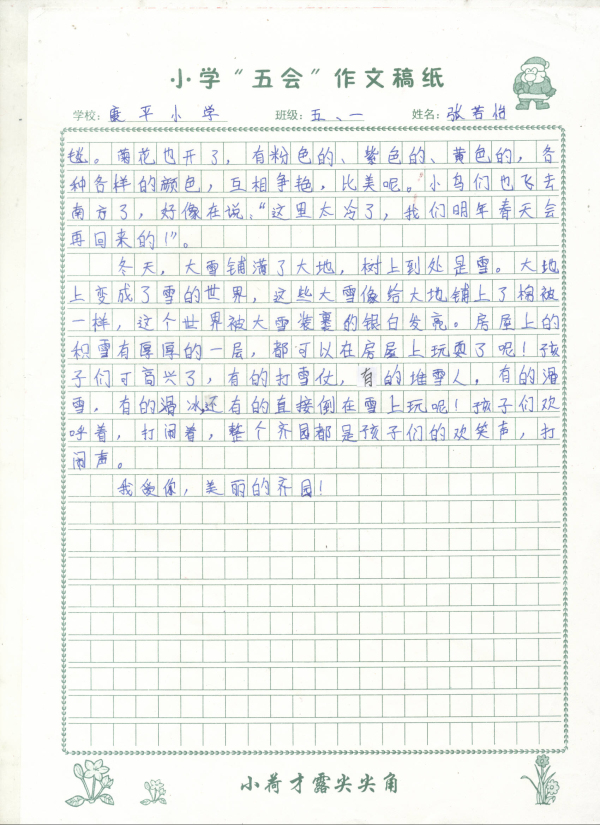 小学“五会”作文稿纸
学校：康平小学 班级：五、一 姓名：张若怡
毯。菊花也开了，有粉色的、紫色的、黄色的，各
种各样的颜色，互相争艳，比美呢。小鸟们也飞去
南方了，好像在说：“这里太冷了，我们明年春天会
再回来的！”。
冬天，大雪铺满了大地，树上到处是雪。大地
上变成了雪的世界，这些大雪像给大地铺上了棉被
一样，这个世界被大雪装裹的银白发亮。房屋上的
积雪有厚厚的一层，都可以在房屋上玩耍了呢！孩
子们可高兴了，有的打雪仗，有的堆雪人，有的滑
雪，有的滑冰还有的直接倒在雪上玩呢！孩子们欢
呼着，打闹着，整个齐园都是孩子们的欢笑声，打
闹声。
我爱你，美丽的齐园！
小荷才露尖尖角